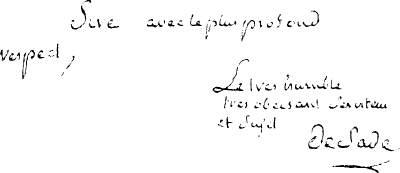 Sire avec le plus profond
respect,
Le tres humble
tres obeisant Serviteur
et Sujet
De Sade